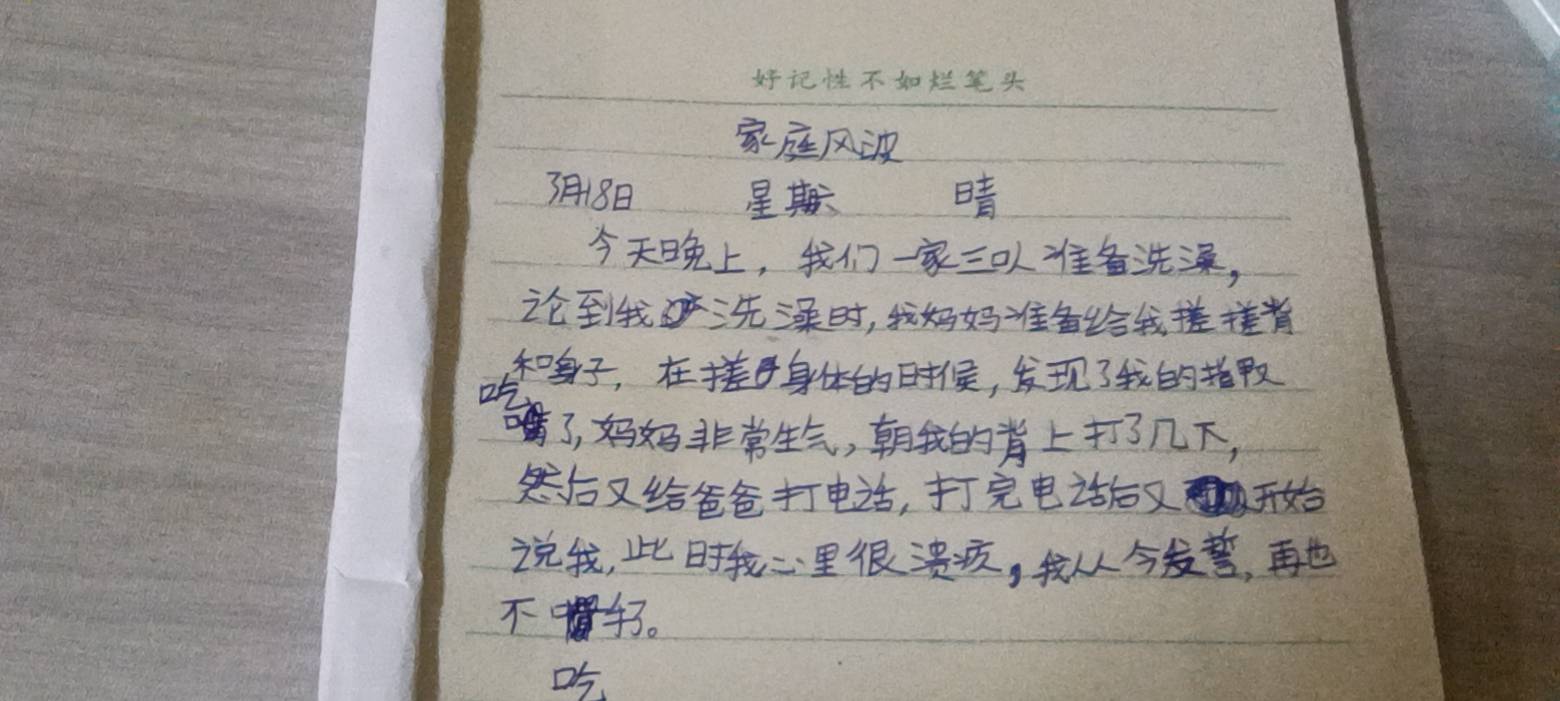 好记性不如烂笔头
家庭风波
3月18日 星期六 晴
今天晚上，我们一家三口人准备洗澡，
论到我洗澡时，我妈妈准备给我搓搓背
和身子，在搓身体的时候，发现了我的指甲
吃
了，妈妈非常生气，朝我的背上打了几下，
然后又给爸爸打电话，打完电话后又开始
说我，此时我心里很溃疚，我从今发誓，再也
不手了。
吃